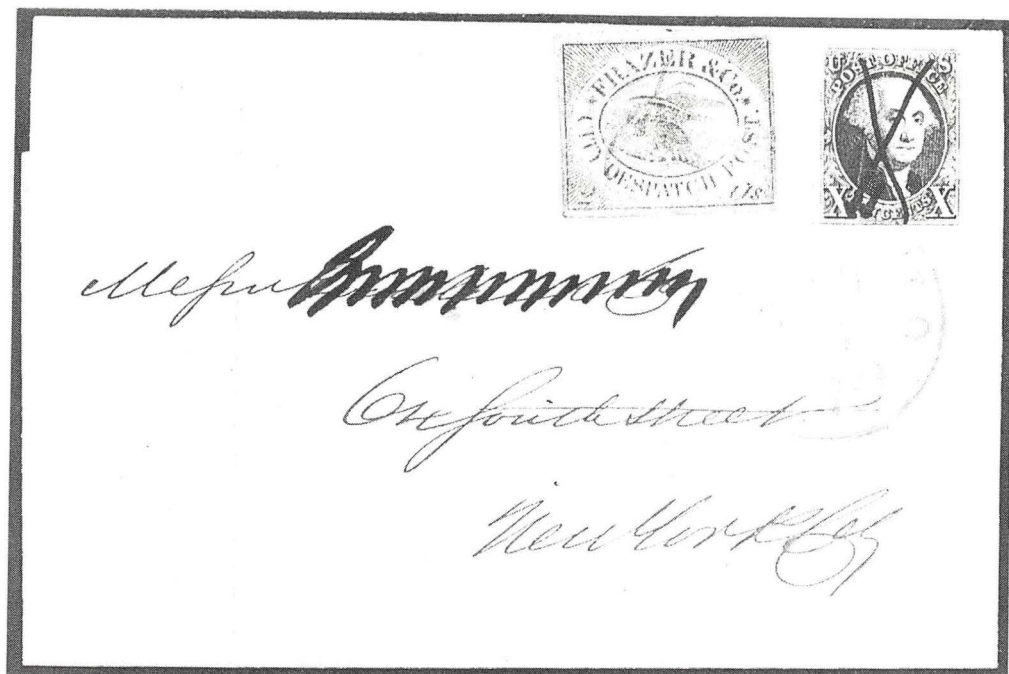 FRAZER & Co.
CITY DESPATCH POST.
U S
POST OFFICE
X CENTS X
Messrs
South Street
New York City